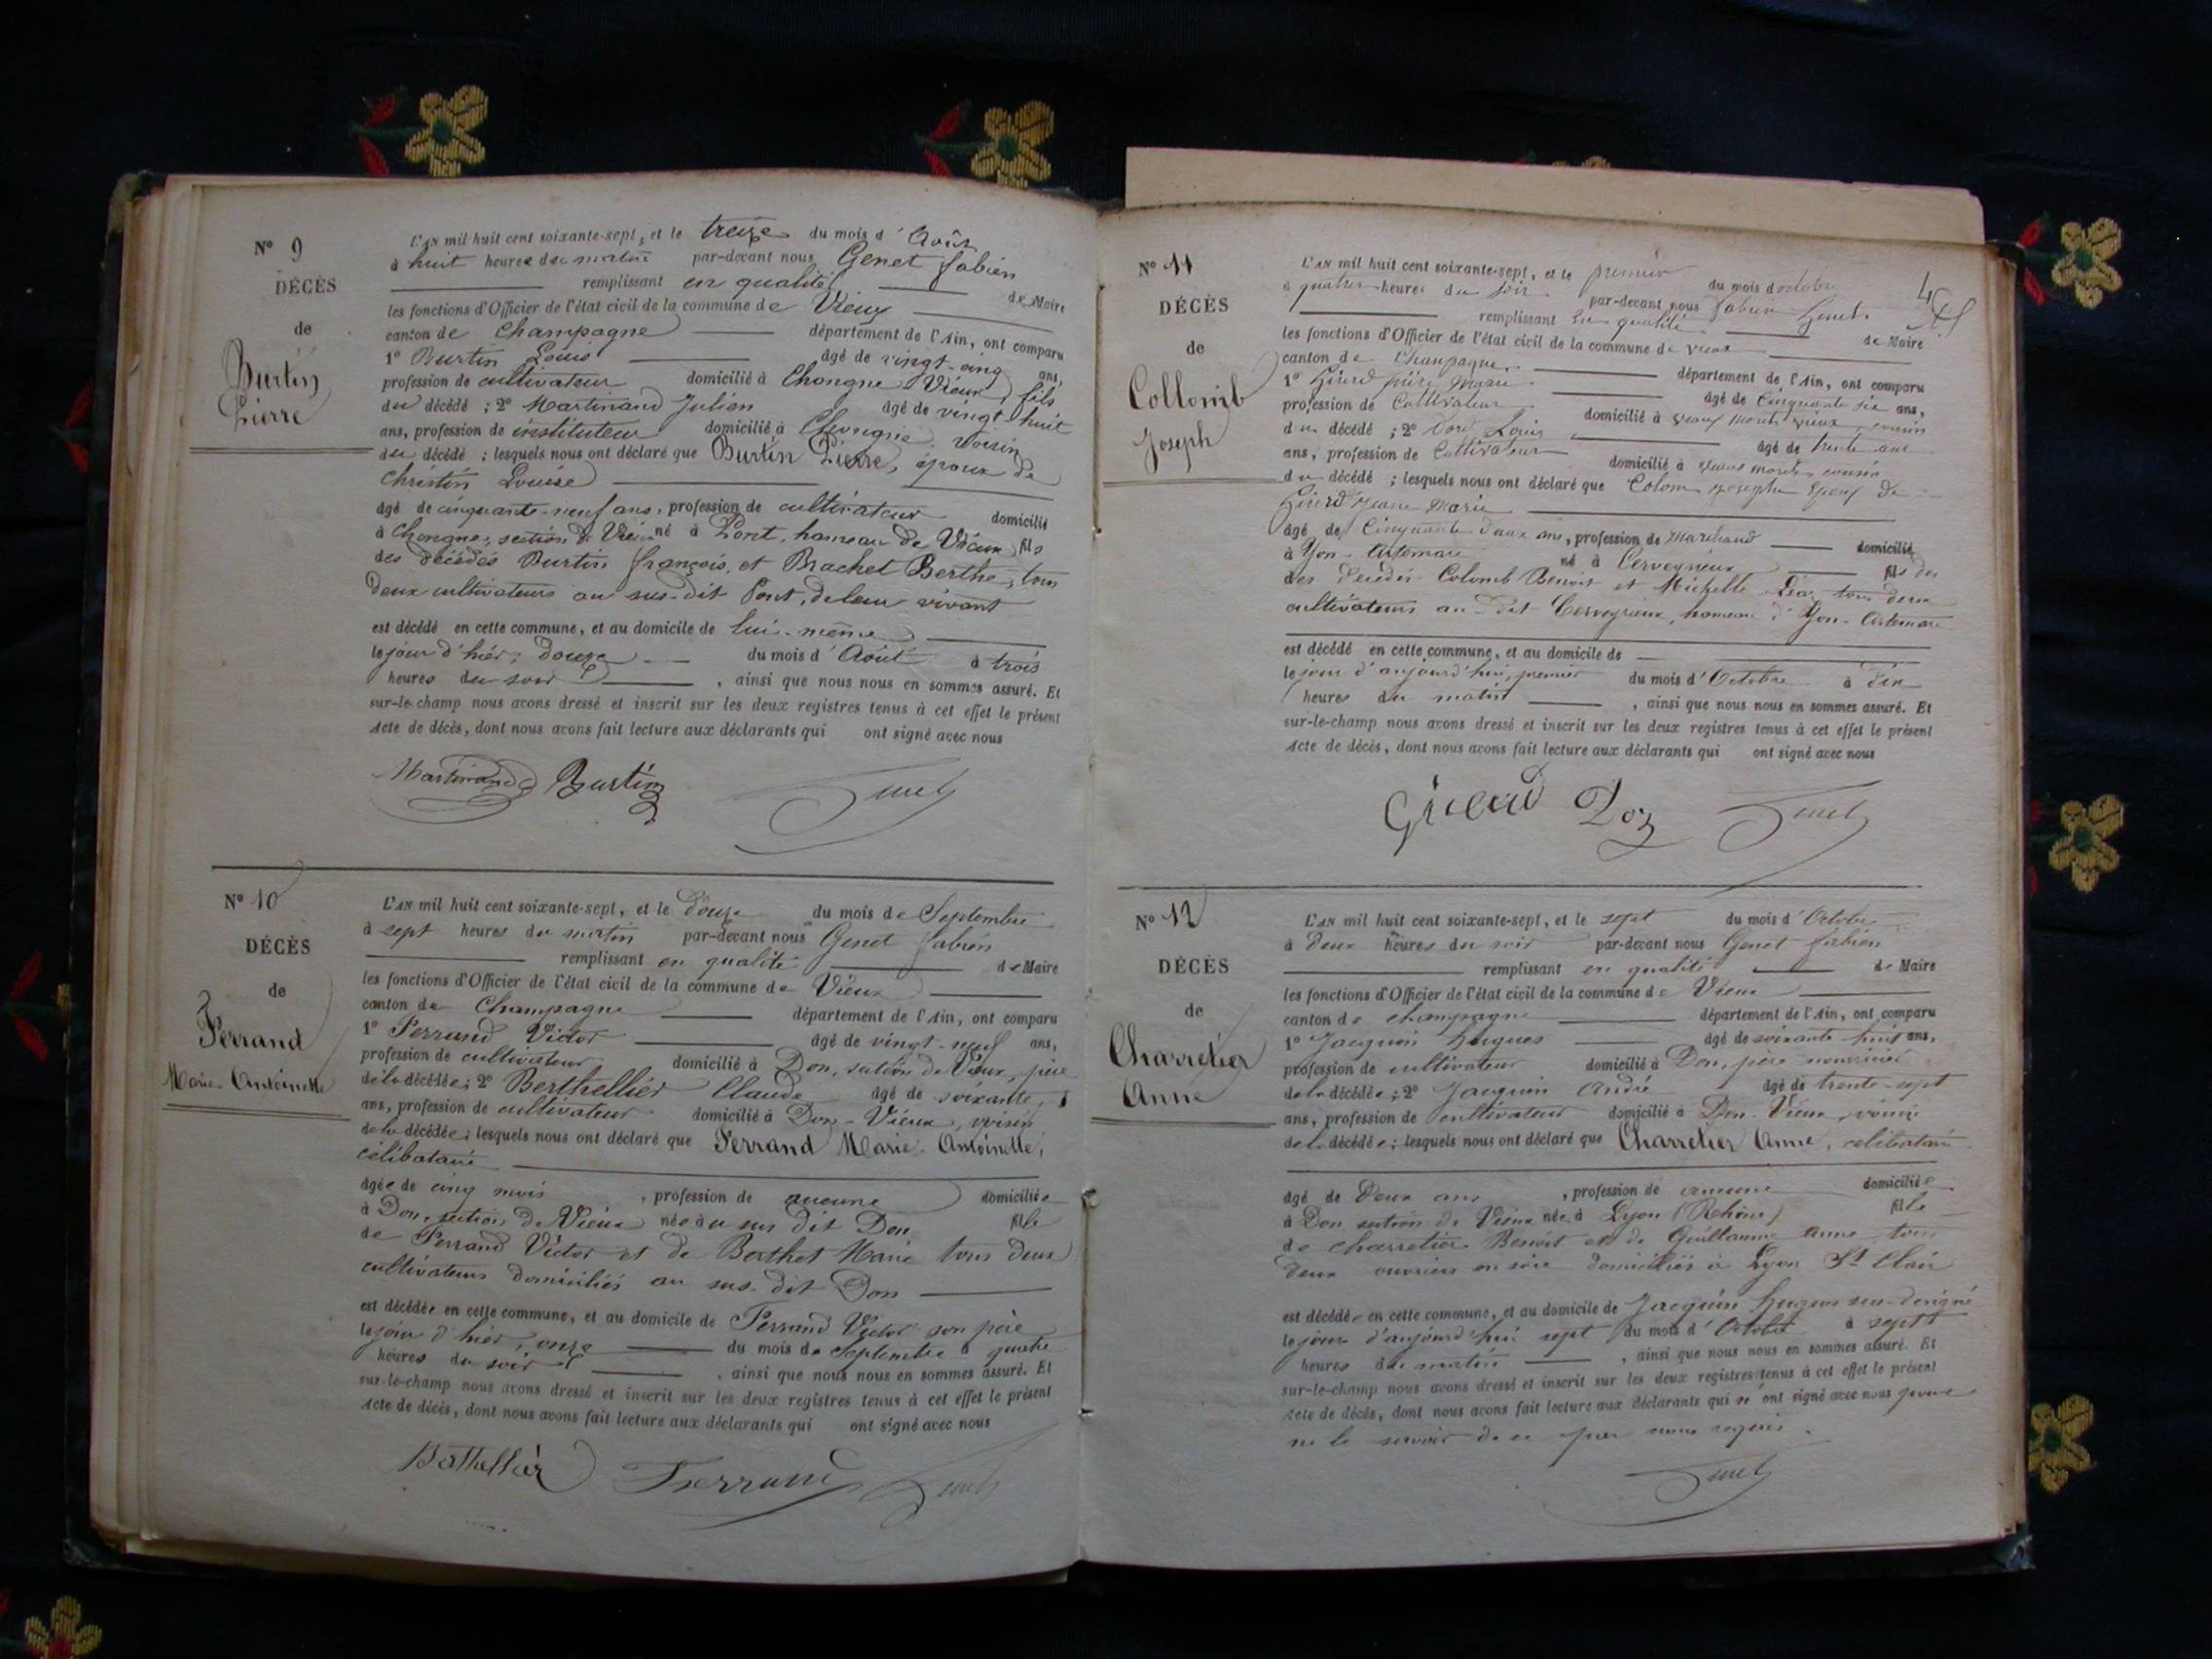 N° 9
DÉCÈS
de
Burtin
Pierre
L'AN mil huit cent soixante-sept, et le treize du mois d'Août
à huit heures du matin par-devant nous Genet fabien
remplissant en qualité de Maire
les fonctions d'Officier de l'état civil de la commune de Vieux
canton de Champagne département de l'Ain, ont comparu
1° Burtin Louis âgé de vingt-cinq ans,
profession de cultivateur domicilié à Chongne Vieux, fils
du décédé ; 2° Martinand Julien âgé de vingt huit
ans, profession de instituteur domicilié à Chongne, voisin
du décédé ; lesquels nous ont déclaré que Burtin Pierre, époux de
Christin Louise
âgé de cinquante-neuf ans, profession de cultivateur domicilié
à Chongne, section de Vieux né à Pont, hameau de Vieux fils
des décédés Burtin françois, et Brachet Berthe, tous
deux cultivateurs au sus-dit Pont, de leur vivant
est décédé en cette commune, et au domicile de lui-même
le jour d'hier, douze du mois d'Août à trois
heures du soir , ainsi que nous nous en sommes assuré. Et
sur-le-champ nous avons dressé et inscrit sur les deux registres tenus à cet effet le présent
Acte de décès, dont nous avons fait lecture aux déclarants qui ont signé avec nous
Martinand Burtin Genet
N° 10
DÉCÈS
de
Ferrand
Marie-Antoinette
L'AN mil huit cent soixante-sept, et le douze du mois de Septembre
à sept heures du matin par-devant nous Genet fabien
remplissant en qualité de Maire
les fonctions d'Officier de l'état civil de la commune de Vieux
canton de Champagne département de l'Ain, ont comparu
1° Ferrand Victor âgé de vingt-neuf ans,
profession de cultivateur domicilié à Don, section de Vieux, père
de la décédée ; 2° Berthellier Claude âgé de soixante
ans, profession de cultivateur domicilié à Don-Vieux, voisin
de la décédée ; lesquels nous ont déclaré que Ferrand Marie-Antoinette,
célibataire
âgée de cinq mois , profession de aucune domiciliée
à Don, section de Vieux née au sus dit Don fille
de Ferrand Victor et de Berthet Marie tous deux
cultivateurs domiciliés au sus-dit Don
est décédée en cette commune, et au domicile de Ferrand Victor son père
le jour d'hier, onze du mois de Septembre à quatre
heures du soir , ainsi que nous nous en sommes assuré. Et
sur-le-champ nous avons dressé et inscrit sur les deux registres tenus à cet effet le présent
Acte de décès, dont nous avons fait lecture aux déclarants qui ont signé avec nous
Bathellier Ferrand Genet
N° 11
DÉCÈS
de
Collomb
Joseph
L'AN mil huit cent soixante-sept, et le premier du mois d'octobre
à quatre heures du soir par-devant nous fabien Genet
remplissant en qualité de Maire
les fonctions d'Officier de l'état civil de la commune de vieux
canton de Champagne département de l'Ain, ont comparu
1° Girerd Marie âgé de Cinquante six ans,
profession de Cultivateur domicilié à vieux cousin
du décédé ; 2° Louis âgé de trente
ans, profession de Cultivateur domicilié à cousin
du décédé ; lesquels nous ont déclaré que Colom Joseph Epoux de
Girerd Jeane Marie
âgé de Cinquante deux ans, profession de Marchand domicilié
à Yon-Artemare né à Cerveyrieux fils de
des décédés Colomb Benoit et Michelle tous deux
cultivateurs au-dit Cerveyrieux, hameau d'Yon-Artemare
est décédé en cette commune, et au domicile de
le jour d'aujourd'hui, premier du mois d'Octobre à dix
heures du matin , ainsi que nous nous en sommes assuré. Et
sur-le-champ nous avons dressé et inscrit sur les deux registres tenus à cet effet le présent
Acte de décès, dont nous avons fait lecture aux déclarants qui ont signé avec nous
Girerd Genet
N° 12
DÉCÈS
de
Charretier
Anne
L'AN mil huit cent soixante-sept, et le sept du mois d'Octobre
à deux heures du soir par-devant nous Genet fabien
remplissant en qualité de Maire
les fonctions d'Officier de l'état civil de la commune de Vieux
canton de champagne département de l'Ain, ont comparu
1° Jacquin hugues âgé de soixante huit ans,
profession de cultivateur domicilié à Don, père nourricier
de la décédée ; 2° Jacquin André âgé de trente-sept
ans, profession de cultivateur domicilié à Don-Vieux, voisin
de la décédée ; lesquels nous ont déclaré que Charretier Anne, célibataire
âgé de deux ans , profession de aucune domiciliée
à Don section de Vieux née à Lyon (Rhône) fille
de charretier Benoit et de Guillaume Anne tous
deux ouvriers en soie domiciliés à Lyon St Clair
est décédée en cette commune, et au domicile de Jacquin hugues
le jour d'aujourd'hui sept du mois d'Octobre à sept
heures du matin , ainsi que nous nous en sommes assuré. Et
sur-le-champ nous avons dressé et inscrit sur les deux registres tenus à cet effet le présent
Acte de décès, dont nous avons fait lecture aux déclarants qui n'ont signé avec nous pour
ne le savoir de ce par nous requis.
Genet